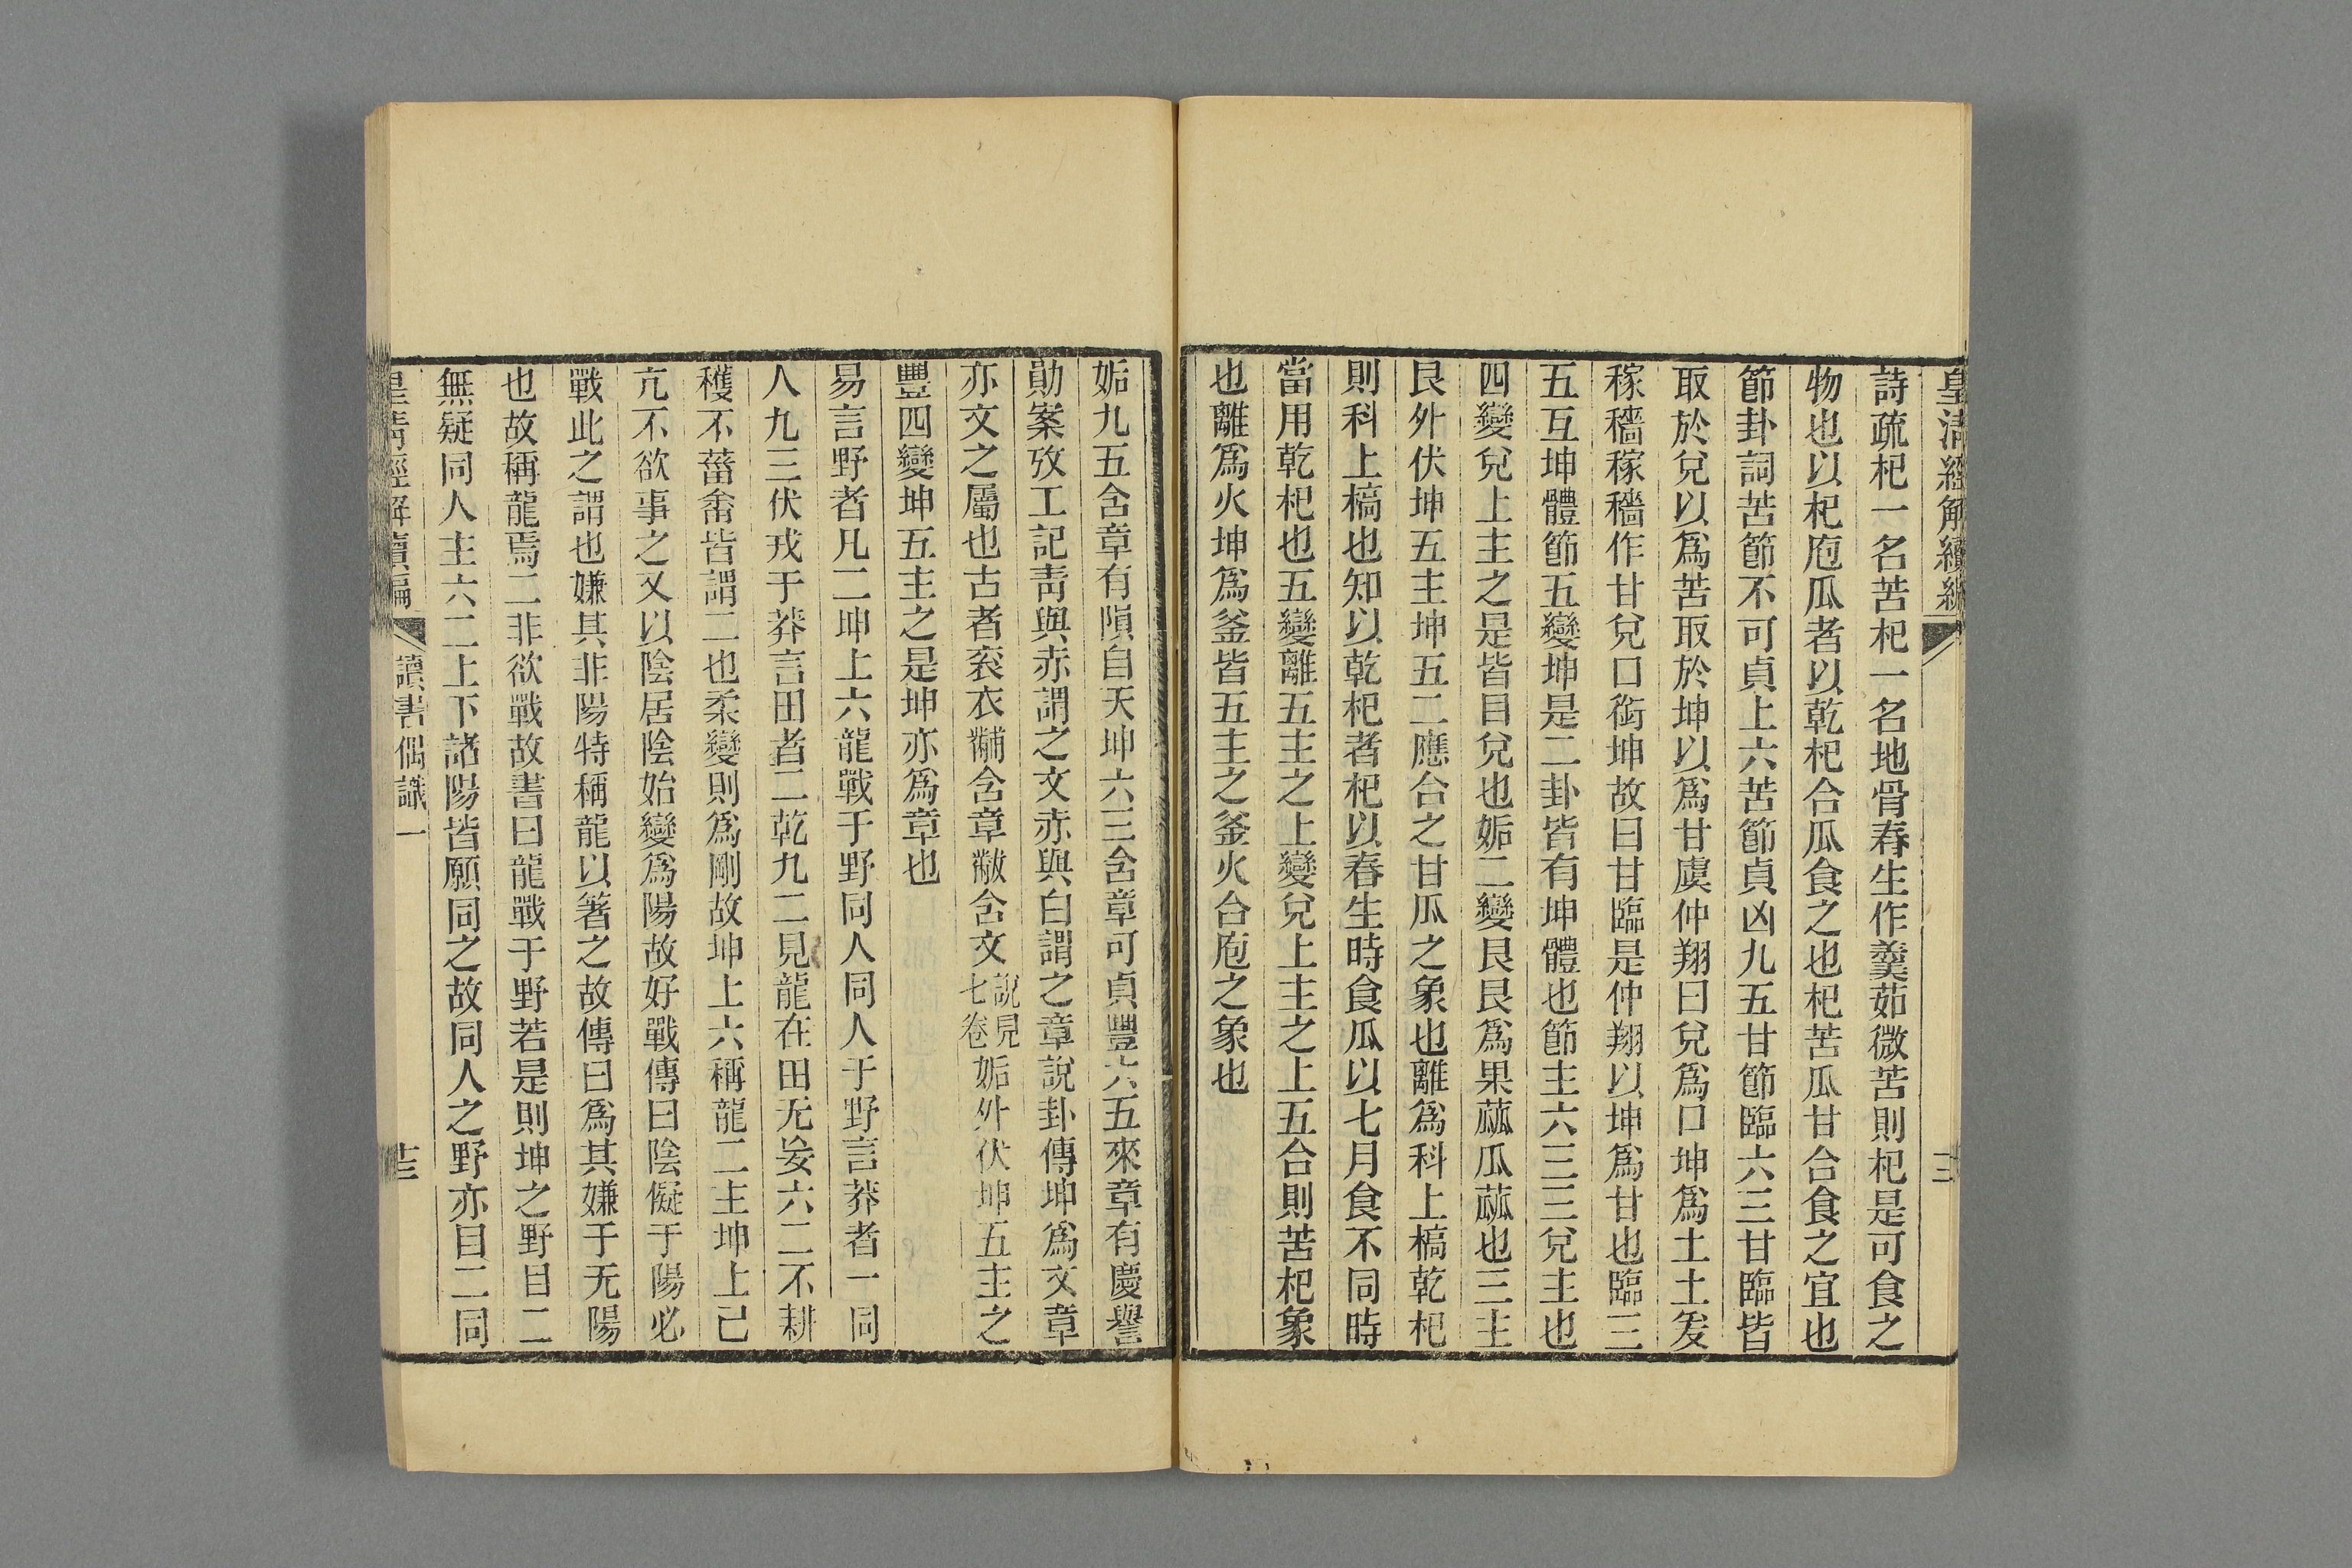 皇清經解續編
三
詩疏杞一名苦杞一名地骨春生作羹茹微苦則杞是可食之
物也以杞庖瓜者以乾杞合瓜食之也杞苦瓜甘合食之宜也
節卦詞苦節不可貞上六苦節貞凶九五甘節臨六三甘臨皆
取於兌以爲苦取於坤以爲甘虞仲翔曰兌爲口坤爲土土爰
稼穡稼穡作甘兌口銜坤故曰甘臨是仲翔以坤爲甘也臨三
五互坤體節五變坤是二卦皆有坤體也節主六三三兌主也
四變兌上主之是皆目兌也姤二變艮艮爲果蓏瓜蓏也三主
艮外伏坤五主坤五二應合之甘瓜之象也離爲科上槁乾杞
則科上槁也知以乾杞者杞以春生時食瓜以七月食不同時
當用乾杞也五變離五主之上變兌上主之上五合則苦杞象
也離爲火坤爲釜皆五主之釜火合庖之象也
姤九五含章有隕自天坤六三含章可貞豐六五來章有慶譽
勛案攷工記靑與赤謂之文赤與白謂之章說卦傳坤爲文章
亦文之屬也古者衮衣黼含章黻含文說見七卷姤外伏坤五主之
豐四變坤五主之是坤亦爲章也
易言野者凡二坤上六龍戰于野同人同人于野言莽者一同
人九三伏戎于莽言田者二乾九二見龍在田无妄六二不耕
穫不菑畬皆謂二也柔變則爲剛故坤上六稱龍二主坤上己
亢不欲事之又以陰居陰始變爲陽故好戰傳曰陰儗于陽必
戰此之謂也嫌其非陽特稱龍以箸之故傳曰爲其嫌于无陽
也故稱龍焉二非欲戰故書曰龍戰于野若是則坤之野目二
無疑同人主六二上下諸陽皆願同之故同人之野亦目二同
皇清經解續編
讀書偶識一